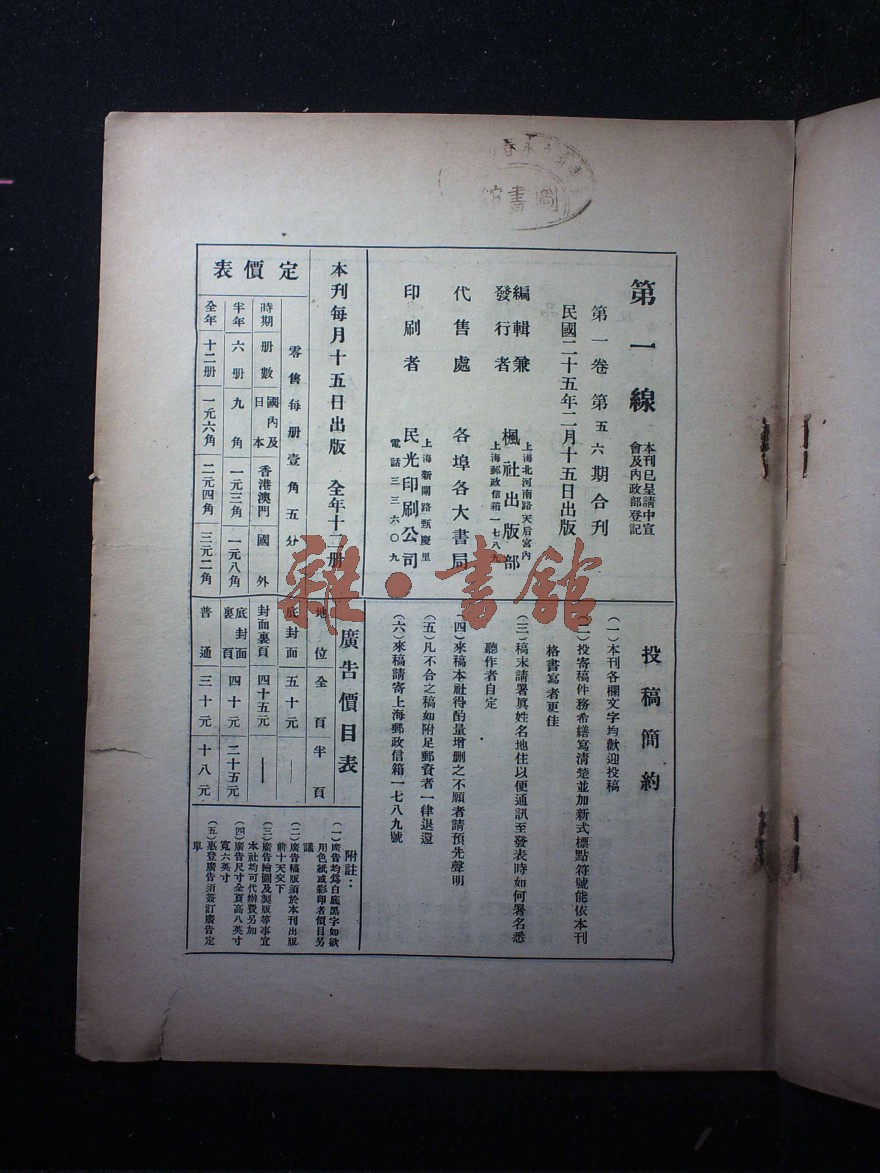 圖書館
第一線
本刊已呈請中宣
會及內政部登記
第一卷第五六期合刊
民國二十五年二月十五日出版
編輯兼
發行者
楓社出版部
上海北河南路天后宮內
上海郵政信箱一七八九
代售處
各埠各大書局
印刷者
民光印刷公司
上海新閘路甄慶里
電話三三六〇九
本刊每月十五日出版
全年十二册
定價表
零售每册壹角五分
時期
册數
國內及
日本
香港澳門
國外
半年
六册
九角
一元三角
一元八角
全年
十二册
一元六角
二元四角
三元二角
投稿簡約
(一)本刊各欄文字均歡迎投稿
(二)投寄稿件務希繕寫清楚並加新式標點符號能依本刊
格書寫者更佳
(三)稿末請署眞姓名地住以便通訊至發表時如何署名悉
聽作者自定
(四)來稿本社得酌量增删之不願者請預先聲明
(五)凡不合之稿如附足郵資者一律退還
(六)來稿請寄上海郵政信箱一七八九號
廣告價目表
地位
全頁
半頁
底封面
五十元
——
封面裏頁
四十五元
——
底封面
裏頁
四十元
二十五元
普通
三十元
十八元
附註：
(一)廣告均爲白底黑字如欲
用色紙或彩印者價目另
議
(二)廣告稿版須於本刊出版
前十天交下
(三)廣告繪圖及製版等事宜
本社均可代辦費另加
(四)廣告尺寸全頁高八英寸
寬六英寸
(五)惠登廣告須簽訂廣告定
單
雜·書館